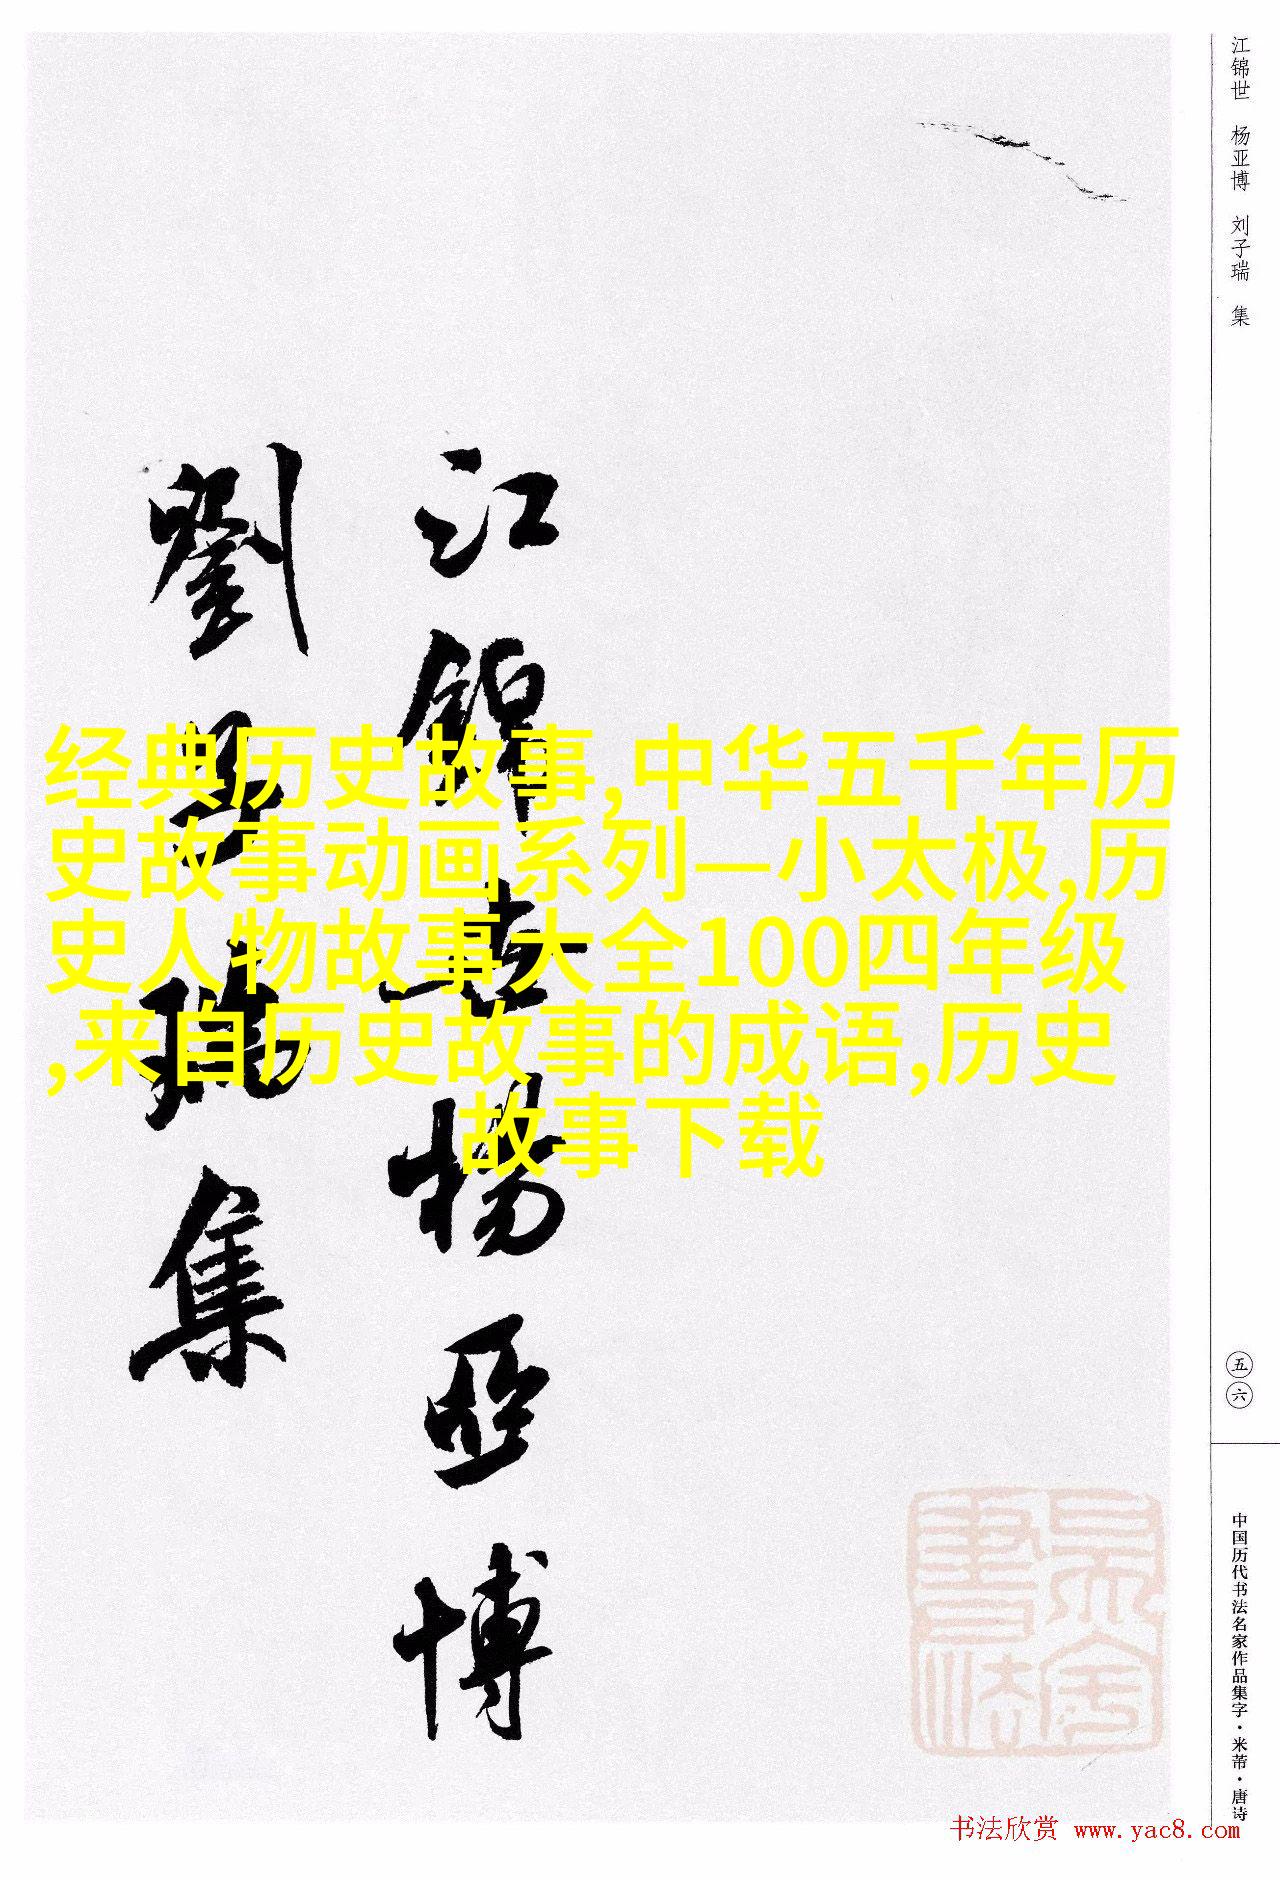 江锦世 杨亚博 刘子瑞 集
江錦世楊亞博
劉子瑞集
经典历史故事,中华五千年历
史故事动画系列—小太极,历
史人物故事大全100四年级
,来自历史故事的成语,历史
故事下载
五六
中国历代书法名家作品集字·米芾·唐诗
书法欣赏 www.yac8.com